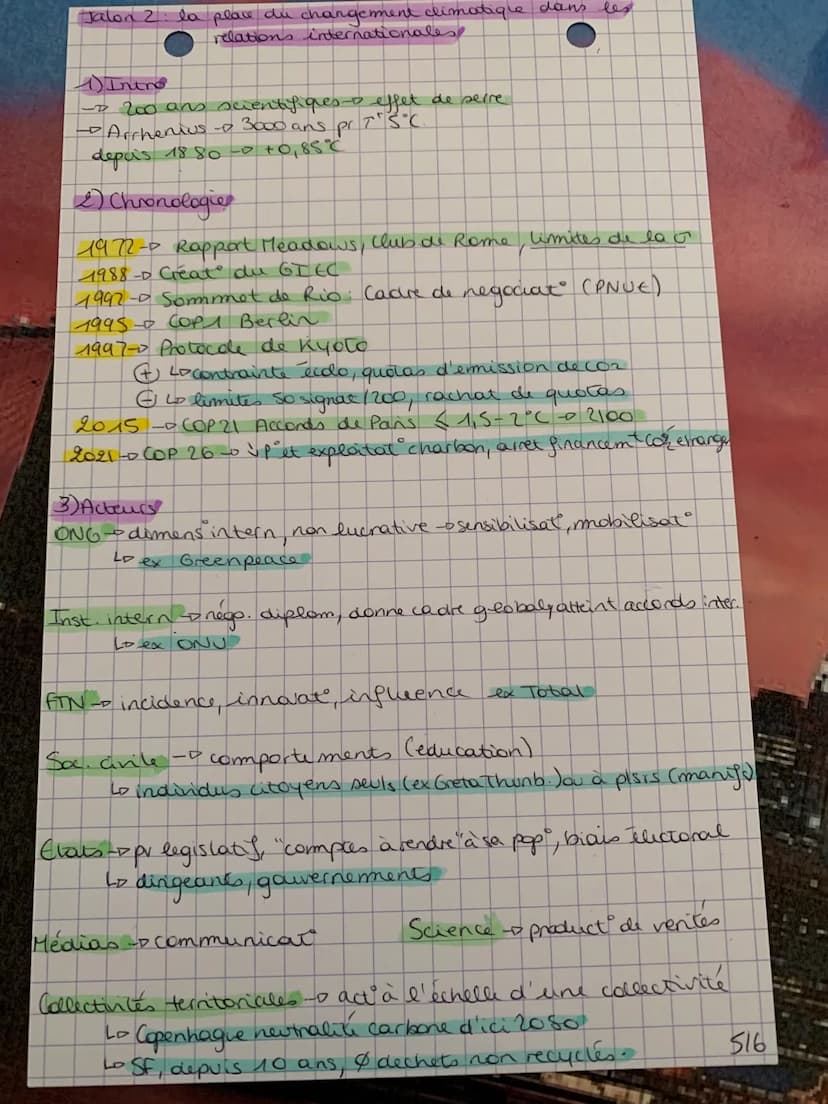 Jalon 2 : la place du changement climatique dans les
relations internationales
1) Intro
→ 200 ans scientifiques → effet de serre
→ Arrhenius → 3000 ans pr T° 5°C
depuis 1880 → +0,85°C
2) Chronologie
1972 → Rapport Meadows, Club de Rome, limites de la
1988 → Créat° du GIEC
1992 → Sommet de Rio : Cadre de negociat° (PNUE)
1995 → COP1 Berlin
1997 → Protocole de Kyoto
⊕ ↳ contrainte écolo, quotas d'emission de CO2
⊖ ↳ limites 50 signat/200, rachat de quotas
2015 → COP21 Accords de Paris ≤ 1,5-2°C → 2100
2021 → COP 26 → ↓ p° et exploitat° charbon, arret financemt étrange
3) Acteurs
ONG → dimens° intern, non lucrative → sensibilisat°, mobilisat°
↳ ex Greenpeace
Inst. intern → négo. diplom, donne cadre global, atteint accords inter.
↳ ex ONU
FTN → incidence, innovat°, influence ex Total
Soc. civile → comportements (education)
↳ individus citoyens seuls (ex Greta Thunb.) ou à plsrs (manifs)
Etats → pv legislatif, "comptes à rendre" à sa pop°, biais électoral
↳ dirigeants, gouvernements
Médias → communicat° Science → product° de verités
Collectivités territoriales → act° à l'échelle d'une collectivité
↳ Copenhague neutralité carbone d'ici 2050
↳ SF, depuis 10 ans, Ø dechets non recyclés.
5/6